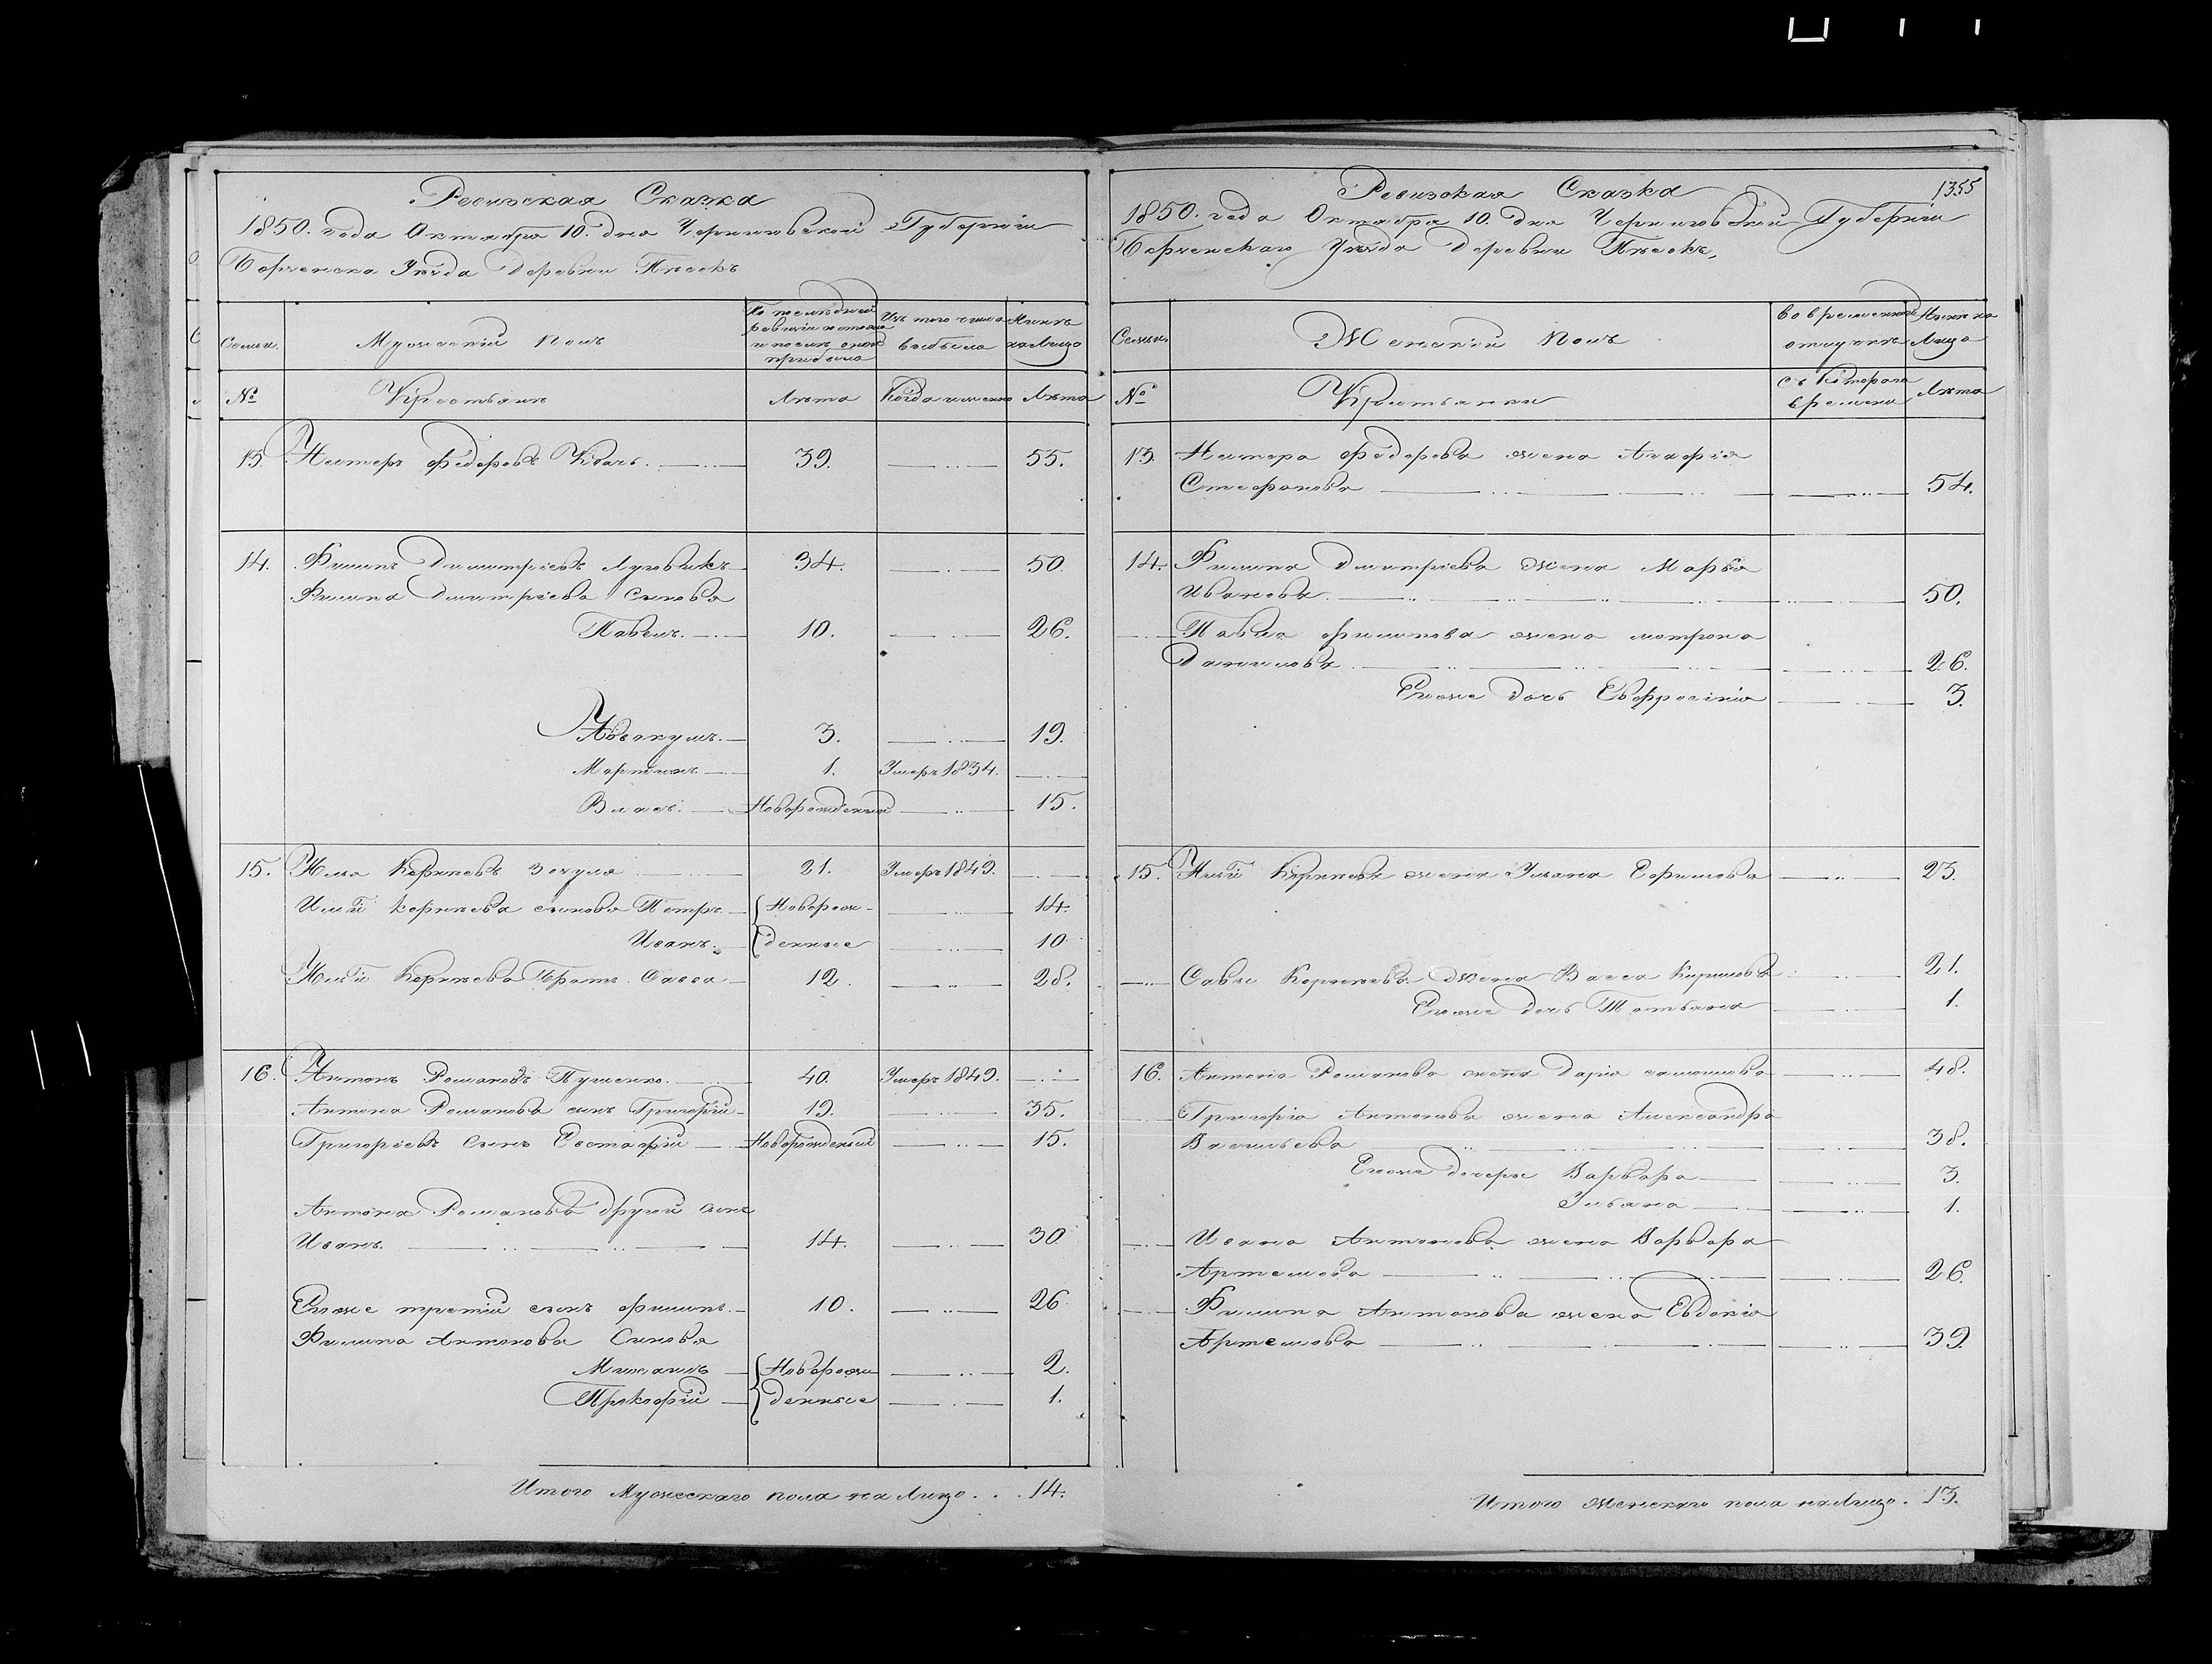 Ревизская Сказка
1850. года Октября 10. дня Черниговской Губерніи
Борзенска Уѣзда Деревни Пѣсокъ
Семьи. Мужескій полъ По послѣдней ревизіи состояло и послѣ оной прибыло Изъ того числа выбыло Нынѣ на Лицо
№ Крестьянъ Лѣта Когда именно Лѣта
13. Нестеръ Федоровъ 39. 55.
14. Филипъ Димитріевъ 34. 50.
Филипа Димитріева Сыновья
Павелъ. 10. 26.
Авакумъ. 3. 19.
Мартинъ 1. Умеръ 1834.
Власъ. Новорожденный 15.
15. Илья Корнѣевъ Зозуля 21. Умеръ 1849.
Ильи Корнѣева сыновья Петръ. Новорож- 14.
Иванъ. денные 10.
Ильи Корнѣева Братъ Савва 12. 28.
16. Антонъ Романовъ 40. Умеръ 1849.
Антона Романова сынъ Григорій 19. 35.
Григоріевъ Сынъ Евстафій Новорожденный 15.
Антона Романова другой сынъ
Иванъ. 14. 30.
Егоже третій сынъ Филипъ. 10. 26.
Филипа Антонова Сыновья
Михаилъ Новорож 2.
Прокофій денные 1.
Итого Мужескаго пола на Лицо . . . 14.
Ревизская Сказка 1355
1850. года Октября 10. дня Черниговской Губерніи
Борзенскаго Уѣзда Деревни Пѣсокъ,
Семьи. Женскій полъ Во временной отлучкѣ Нынѣ на Лицо
№ Крестьянки съ Котораго времени Лѣта
13. Нестера Федорова жена Агафія
Стефанова 54.
14. Филипа Димитріева Жена Марья
Иванова. 50.
Павла Филипова жена Матрона
Данилова 26.
Егоже дочь Евфросинія 3.
15. Ильи Корнѣева жена Уліана Ефимова 23.
Савы Корнѣева Жена Васса Кирилова 21.
Егоже дочь Татьяна 1.
16. Антона Романова жена Дарія Самойлова 48.
Григорія Антонова жена Александра
Васильева 38.
Егоже дочери Варвара 3.
Уліана 1.
Ивана Антонова жена Варвара
Артемова 26.
Филипа Антонова жена Евдокія
Артемова 39.
Итого женскаго пола на Лицо. 13.